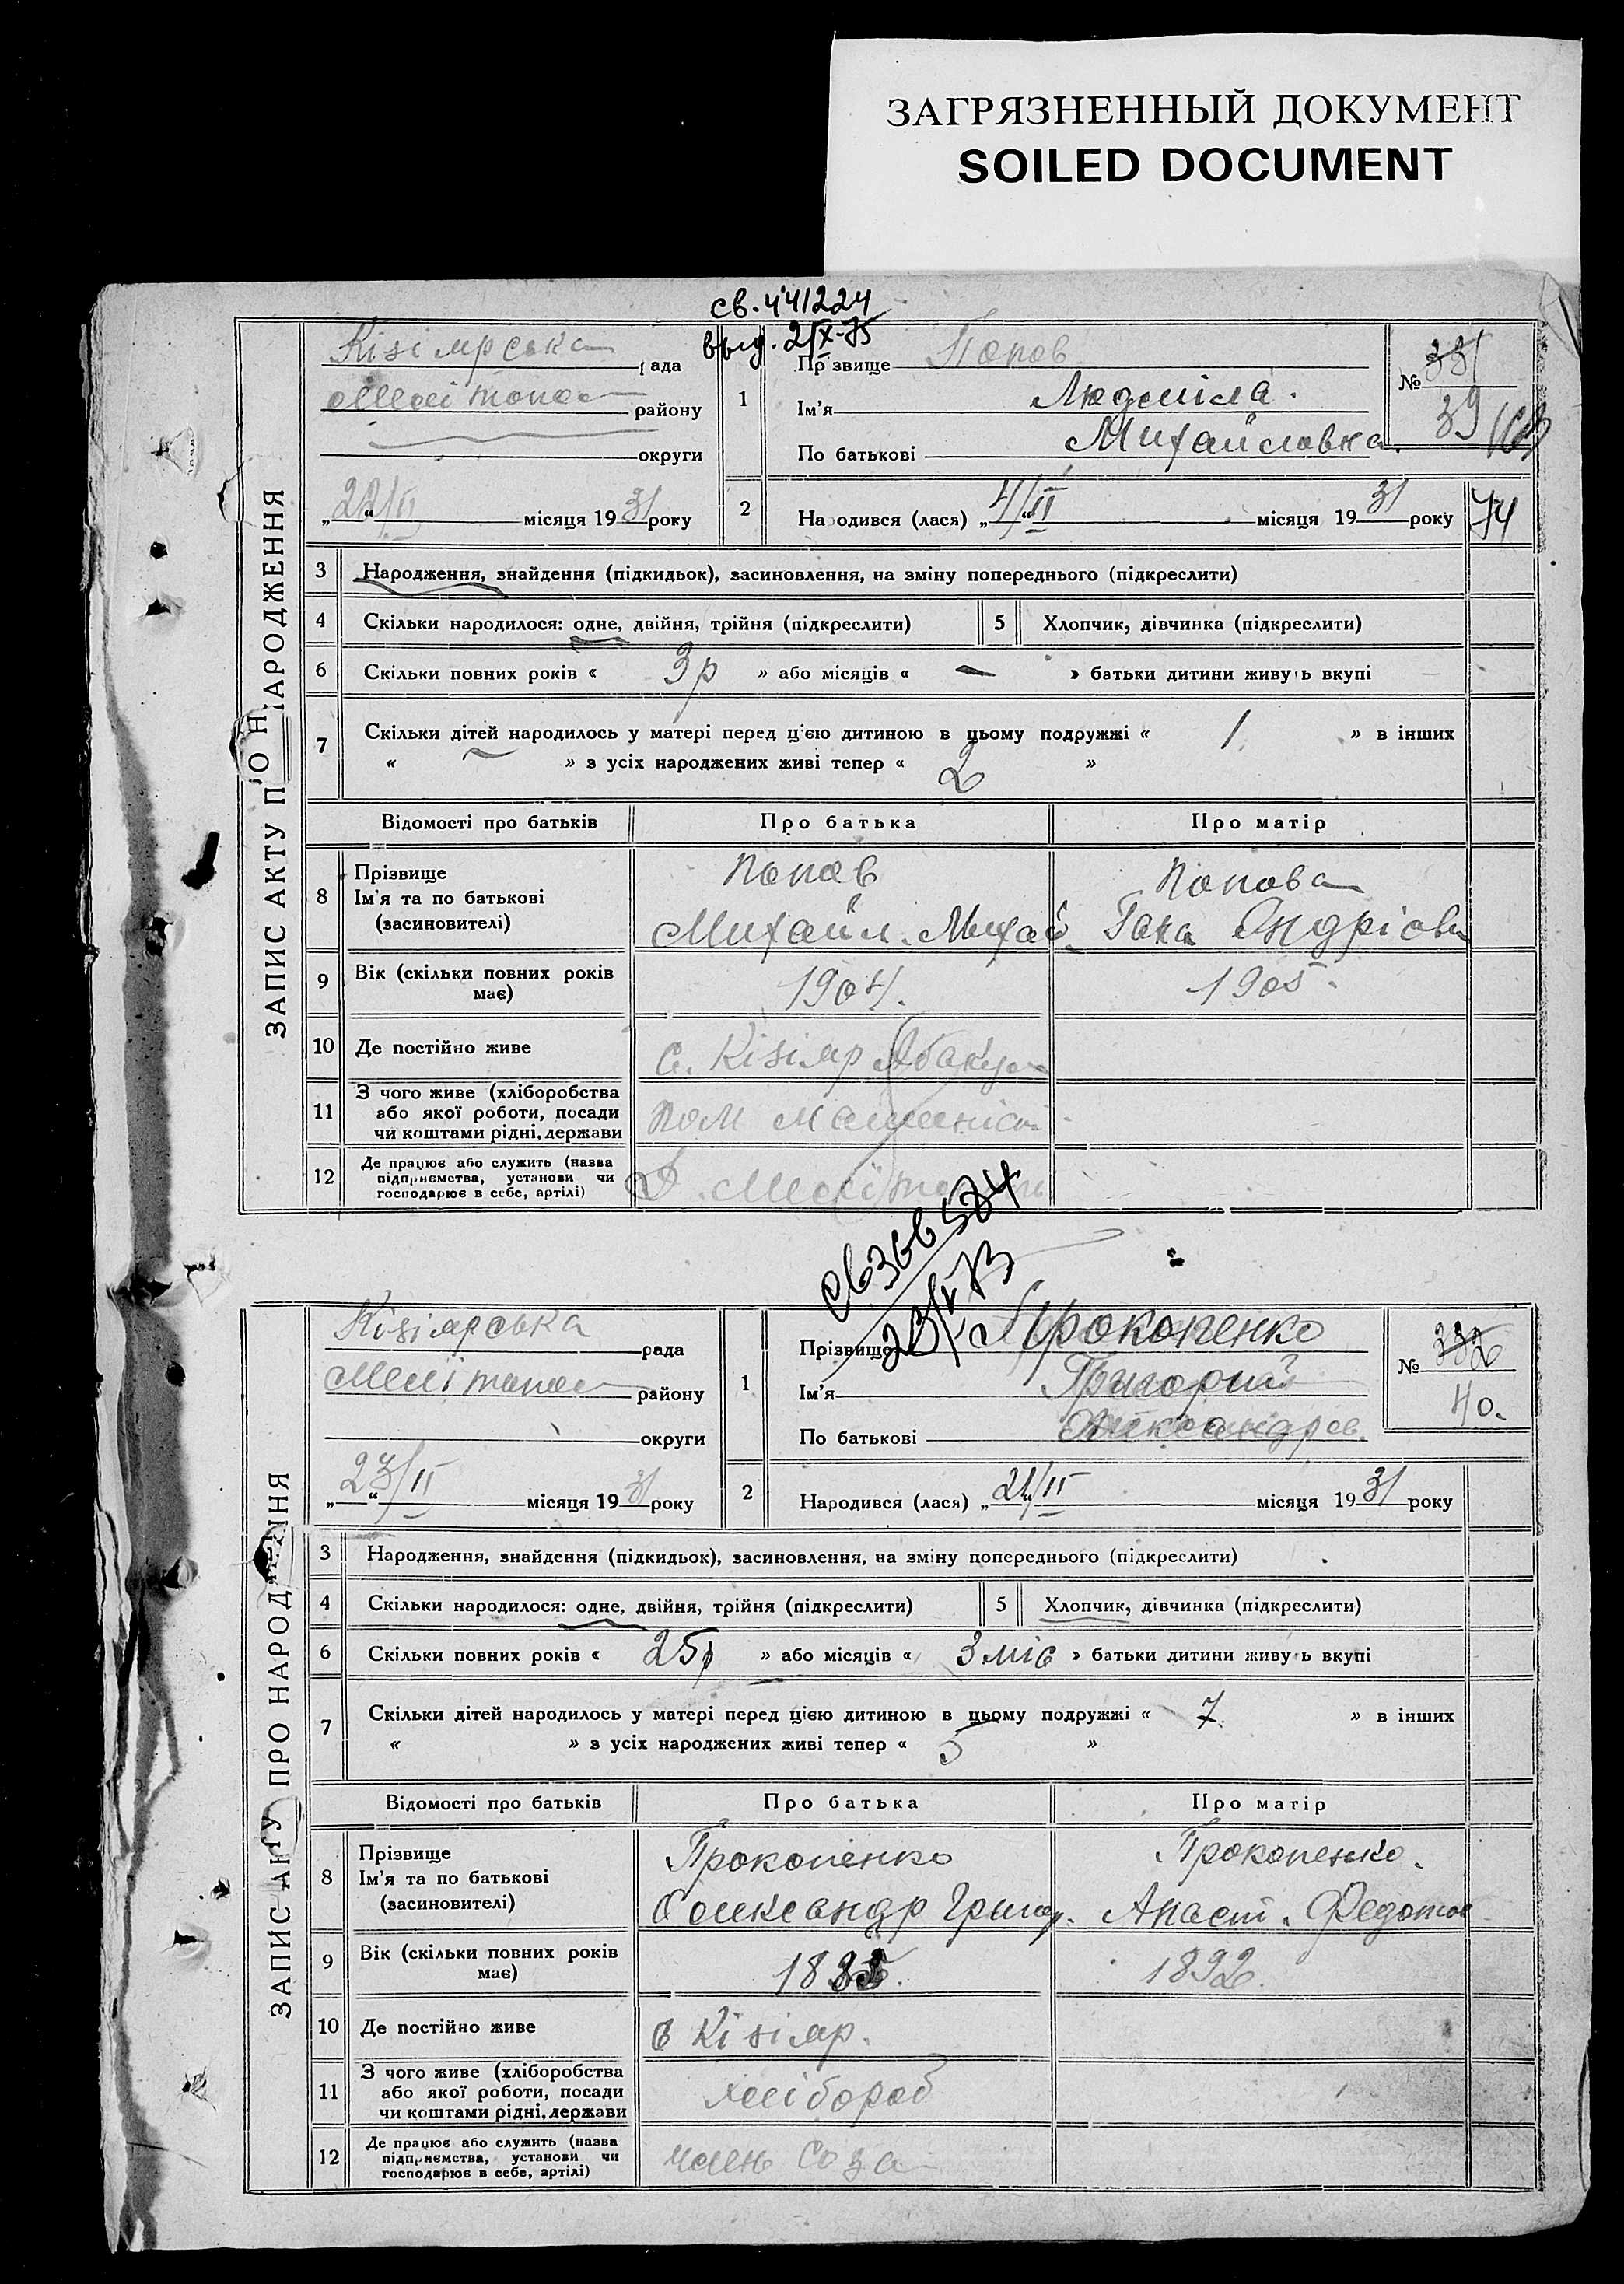 ЗАГРЯЗНЕННЫЙ ДОКУМЕНТ
SOILED DOCUMENT
св. 441224
выд. 2/IX-75
ЗАПИС АКТУ ПРО НАРОДЖЕННЯ
Кізіярська рада
Мелітопол району
округи
„22“/II місяця 1931 року
1
Прізвище Попов
Ім'я Людміла.
По батькові Михайловка.
№ 331
39
74
2
Народився (лася) „4/“II місяця 1931 року
3 Народження, знайдення (підкидьок), засиновлення, на зміну попереднього (підкреслити)
4 Скільки народилося: одне, двійня, трійня (підкреслити)
5 Хлопчик, дівчинка (підкреслити)
6 Скільки повних років « 3 р » або місяців « — » батьки дитини живуть вкупі
7 Скільки дітей народилось у матері перед цією дитиною в цьому подружжі « 1 » в інших
« — » з усіх народжених живі тепер « 2 »
Відомості про батьків Про батька Про матір
8 Прізвище
Ім'я та по батькові
(засновителі)
Попов
Михайл. Михай
Попова
Гана Андріовн
9 Вік (скільки повних років
має)
1904.
1905.
10 Де постійно живе
с. Кізіяр
11 З чого живе (хліборобства
або якої роботи, посади
чи коштами рідні, держави
пом машиніст
12 Де працює або служить (назва
підприємства, установи чи
господарює в себе, артілі)
св 366574
23/V 73
ЗАПИС АКТУ ПРО НАРОДЖЕННЯ
Кізіярська рада
Мелітопол району
округи
„23“/II місяця 1931 року
1
Прізвище Прокопенко
Ім'я Григорий
По батькові Олександров.
№ 332
40.
2
Народився (лася) „21“/II місяця 1931 року
3 Народження, знайдення (підкидьок), засиновлення, на зміну попереднього (підкреслити)
4 Скільки народилося: одне, двійня, трійня (підкреслити)
5 Хлопчик, дівчинка (підкреслити)
6 Скільки повних років « 25 р » або місяців « 3 міс » батьки дитини живуть вкупі
7 Скільки дітей народилось у матері перед цією дитиною в цьому подружжі « 7. » в інших
« » з усіх народжених живі тепер « 5 »
Відомості про батьків Про батька Про матір
8 Прізвище
Ім'я та по батькові
(засиновителі)
Прокопенко
Олександр Григор.
Прокопенко.
Анаст. Федотов
9 Вік (скільки повних років
має)
1892.
10 Де постійно живе
с Кізіяр.
11 З чого живе (хліборобства
або якої роботи, посади
чи коштами рідні, держави
хлібороб
12 Де працює або служить (назва
підприємства, установи чи
господарює в себе, артілі)
член Соза